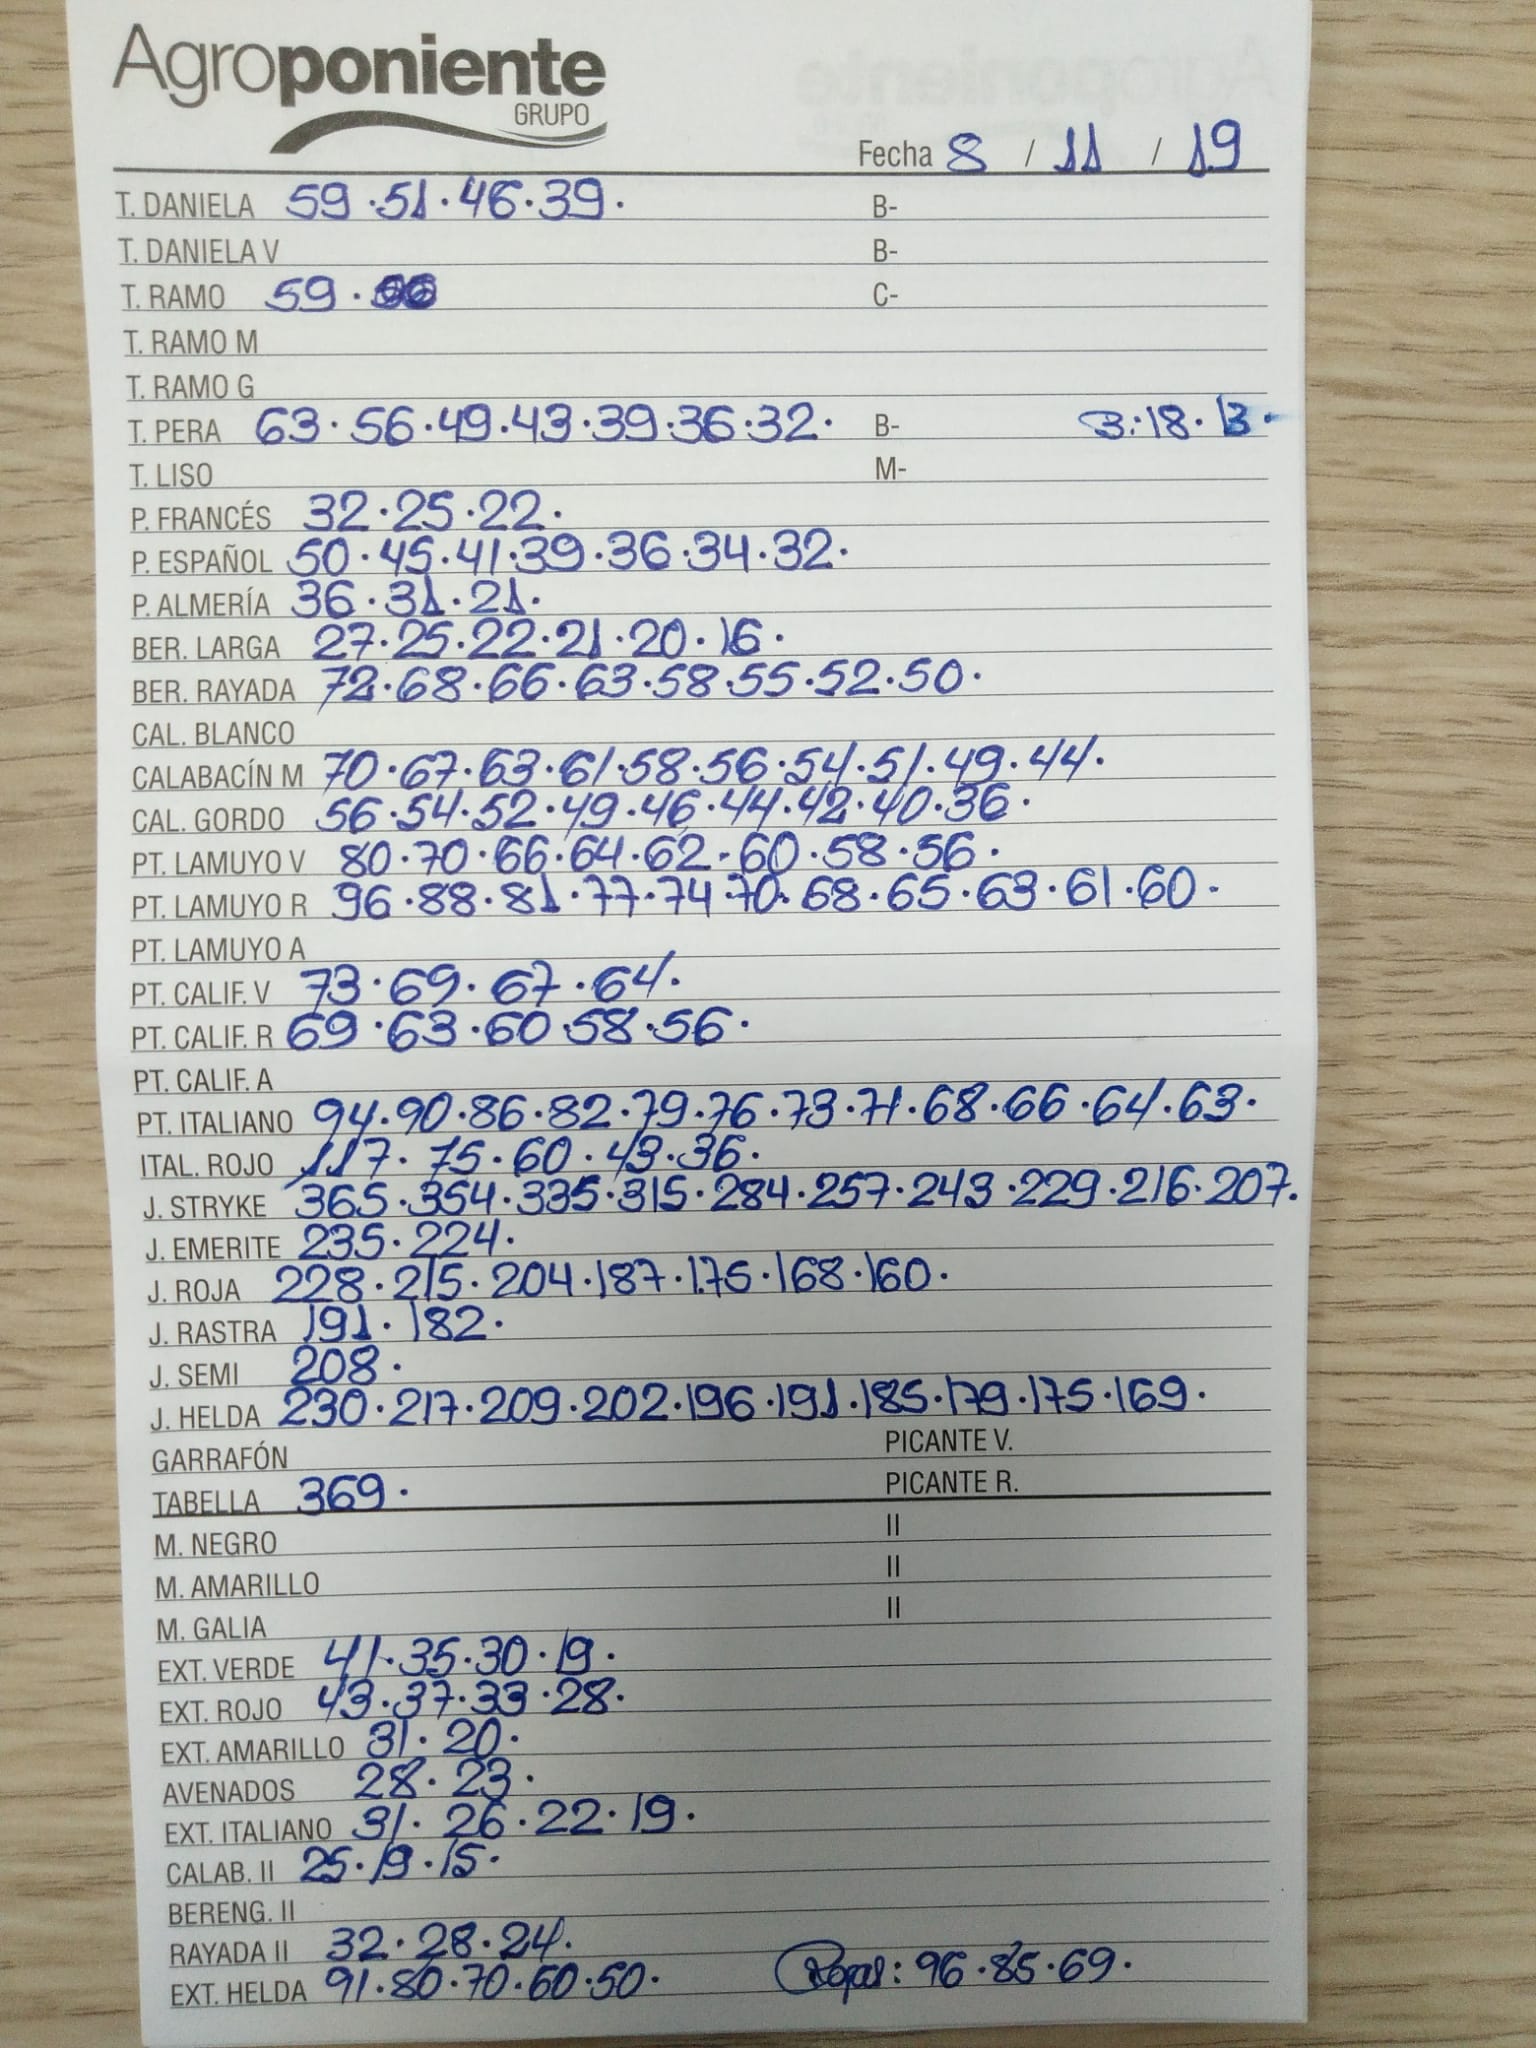 Agroponiente
GRUPO
Fecha 8 / 11 / 19
T. DANIELA 59·51·46·39· B-
T. DANIELA V B-
T. RAMO 59· C-
T. RAMO M
T. RAMO G
T. PERA 63·56·49·43·39·36·32· B- 3:18·13·
T. LISO M-
P. FRANCÉS 32·25·22·
P. ESPAÑOL 50·45·41·39·36·34·32·
P. ALMERÍA 36·31·21·
BER. LARGA 27·25·22·21·20·16·
BER. RAYADA 72·68·66·63·58·55·52·50·
CAL. BLANCO
CALABACÍN M 70·67·63·61·58·56·54·51·49·44·
CAL. GORDO 56·54·52·49·46·44·42·40·36·
PT. LAMUYO V 80·70·66·64·62·60·58·56·
PT. LAMUYO R 96·88·81·77·74·70·68·65·63·61·60·
PT. LAMUYO A
PT. CALIF. V 73·69·67·64·
PT. CALIF. R 69·63·60·58·56·
PT. CALIF. A
PT. ITALIANO 94·90·86·82·79·76·73·71·68·66·64·63·
ITAL. ROJO 117·75·60·43·36·
J. STRYKE 365·354·335·315·284·257·243·229·216·207.
J. EMERITE 235·224·
J. ROJA 228·215·204·187·175·168·160·
J. RASTRA 191·182·
J. SEMI 208·
J. HELDA 230·217·209·202·196·191·185·179·175·169·
GARRAFÓN PICANTE V.
TABELLA 369· PICANTE R.
M. NEGRO II
M. AMARILLO II
M. GALIA II
EXT. VERDE 41·35·30·19·
EXT. ROJO 43·37·33·28·
EXT. AMARILLO 31·20·
AVENADOS 28·23·
EXT. ITALIANO 31·26·22·19·
CALAB. II 25·19·15·
BERENG. II
RAYADA II 32·28·24·
EXT. HELDA 91·80·70·60·50· Rojas: 96·85·69·